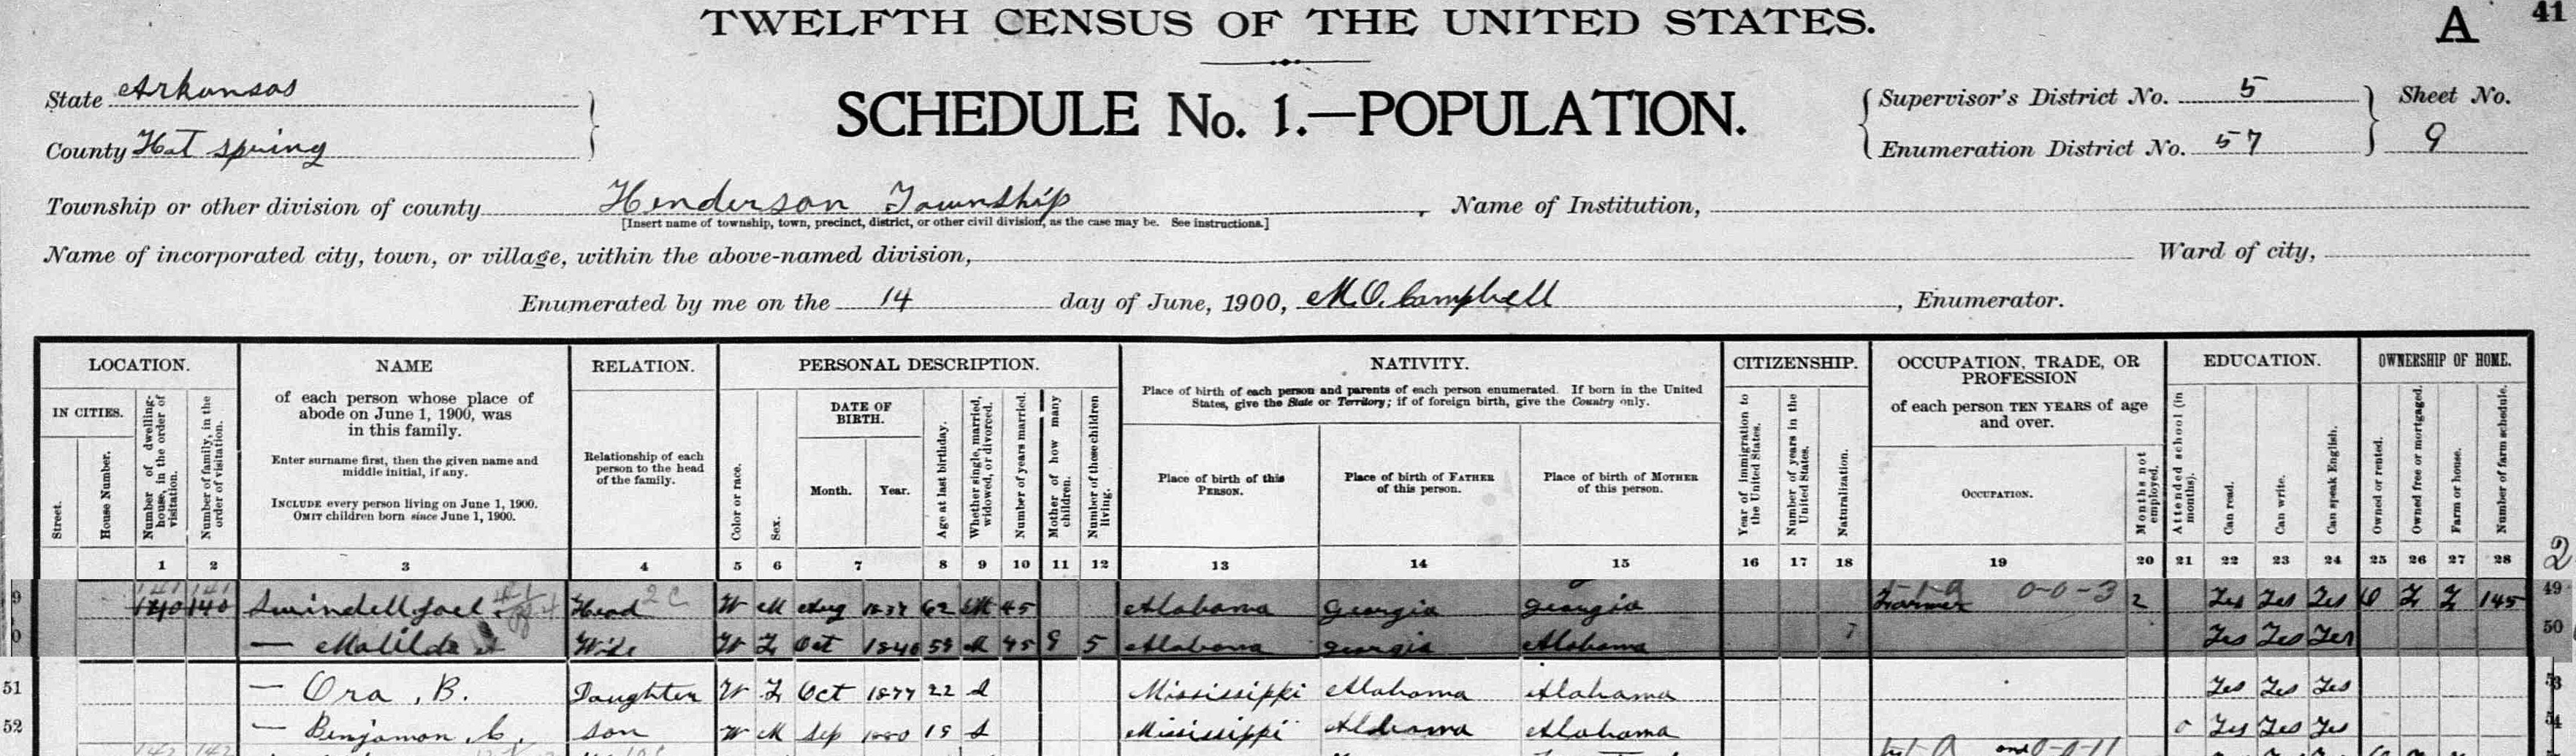 TWELFTH CENSUS OF THE UNITED STATES.
A 41
State Arkansas
County Hot Spring
SCHEDULE No. 1.—POPULATION.
Supervisor's District No. 5 Sheet No.
Enumeration District No. 57 9
Township or other division of county Henderson Township , Name of Institution,
[Insert name of township, town, precinct, district, or other civil division, as the case may be. See instructions.]
Name of incorporated city, town, or village, within the above-named division, Ward of city,
Enumerated by me on the 14 day of June, 1900, M.O. Campbell , Enumerator.
LOCATION. NAME RELATION. PERSONAL DESCRIPTION. NATIVITY. CITIZENSHIP. OCCUPATION, TRADE, OR PROFESSION EDUCATION. OWNERSHIP OF HOME.
IN CITIES.
Street.
House Number.
Number of dwelling-house, in the order of visitation.
Number of family, in the order of visitation.
of each person whose place of abode on June 1, 1900, was in this family.
Enter surname first, then the given name and middle initial, if any.
INCLUDE every person living on June 1, 1900.
OMIT children born since June 1, 1900.
Relationship of each person to the head of the family.
Color or race.
Sex.
DATE OF BIRTH.
Month. Year.
Age at last birthday.
Whether single, married, widowed, or divorced.
Number of years married.
Mother of how many children.
Number of those children living.
Place of birth of each person and parents of each person enumerated. If born in the United States, give the State or Territory; if of foreign birth, give the Country only.
Place of birth of this PERSON.
Place of birth of FATHER of this person.
Place of birth of MOTHER of this person.
Year of immigration to the United States.
Number of years in the United States.
Naturalization.
of each person TEN YEARS of age and over.
OCCUPATION.
Months not employed.
Attended school (in months).
Can read.
Can write.
Can speak English.
Owned or rented.
Owned free or mortgaged.
Farm or house.
Number of farm schedule.
1 2 3 4 5 6 7 8 9 10 11 12 13 14 15 16 17 18 19 20 21 22 23 24 25 26 27 28
2
141 141
9 140 140 Swindell Joel Head W M Aug 1837 62 M 45 Alabama Georgia Georgia Farmer 0-0-3 2 Yes Yes Yes O F F 145 49
0 — Matilda Wife W F Oct 1840 59 M 45 9 5 Alabama Georgia Alabama 7 Yes Yes Yes 50
51 — Ora, B. Daughter W F Oct 1877 22 S Mississippi Alabama Alabama Yes Yes Yes
52 — Benjamon, C. Son W M Sep 1880 19 S Mississippi Alabama Alabama 0 Yes Yes Yes
142 142